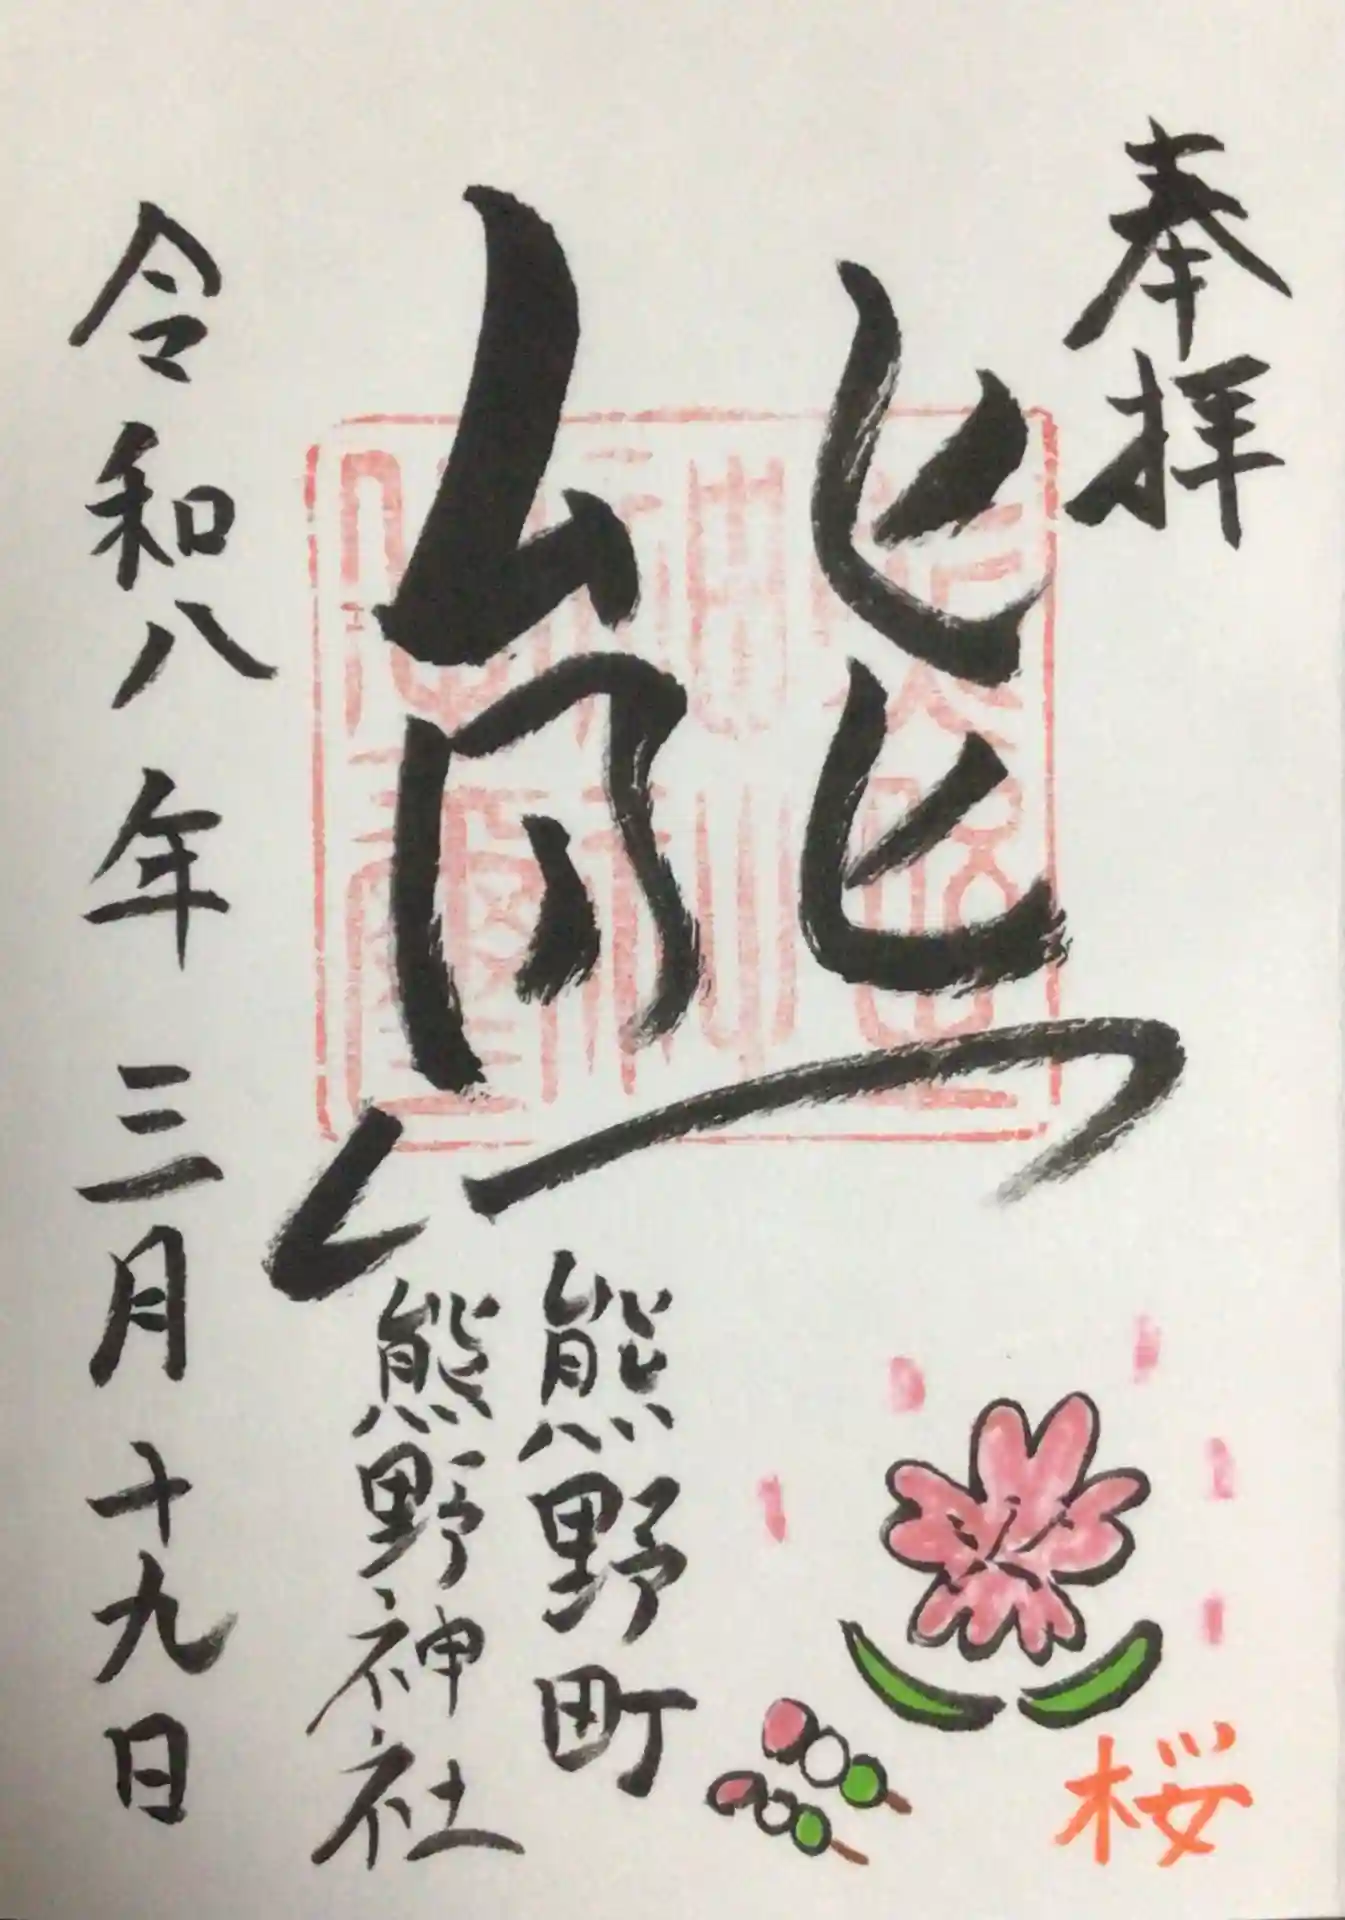 奉拝
熊
熊野町
熊野神社
令和八年三月十九日
桜